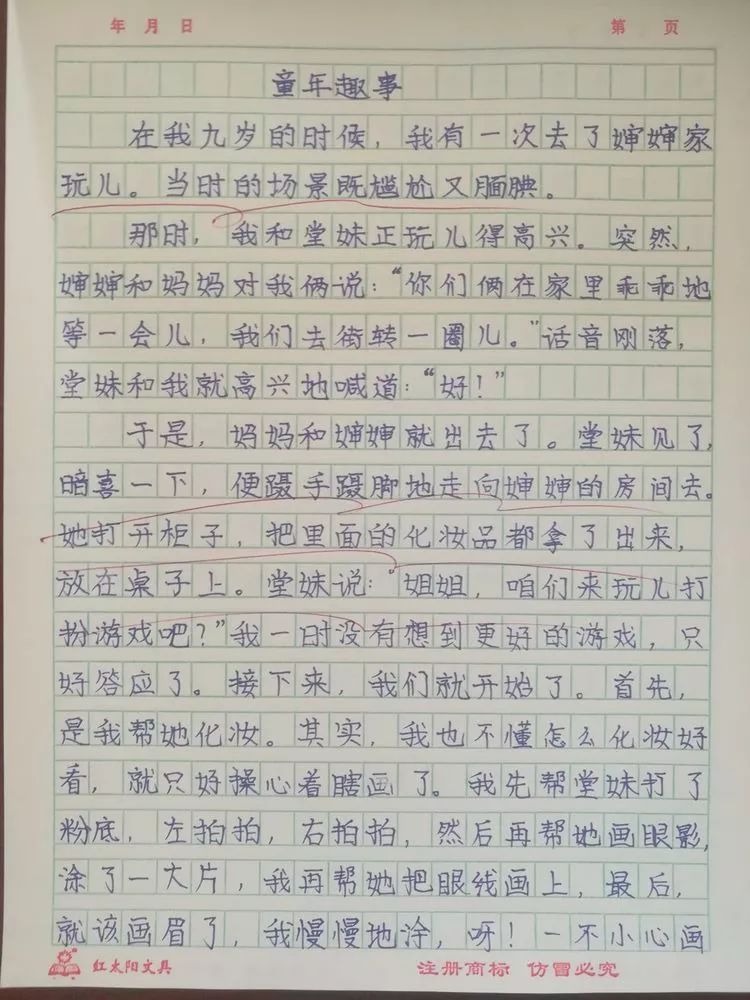 年 月 日 第 页
童年趣事
在我九岁的时候，我有一次去了婶婶家
玩儿。当时的场景既尴尬又腼腆。
那时，我和堂妹正玩儿得高兴。突然，
婶婶和妈妈对我俩说：“你们俩在家里乖乖地
等一会儿，我们去街转一圈儿。”话音刚落，
堂妹和我就高兴地喊道：“好！”
于是，妈妈和婶婶就出去了。堂妹见了，
暗喜一下，便蹑手蹑脚地走向婶婶的房间去。
她打开柜子，把里面的化妆品都拿了出来，
放在桌子上。堂妹说：“姐姐，咱们来玩儿打
扮游戏吧？”我一时没有想到更好的游戏，只
好答应了。接下来，我们就开始了。首先，
是我帮她化妆。其实，我也不懂怎么化妆好
看，就只好操心着瞎画了。我先帮堂妹打了
粉底，左拍拍，右拍拍，然后再帮她画眼影，
涂了一大片，我再帮她把眼线画上，最后，
就该画眉了，我慢慢地涂，呀！一不小心画
红太阳文具 注册商标 仿冒必究